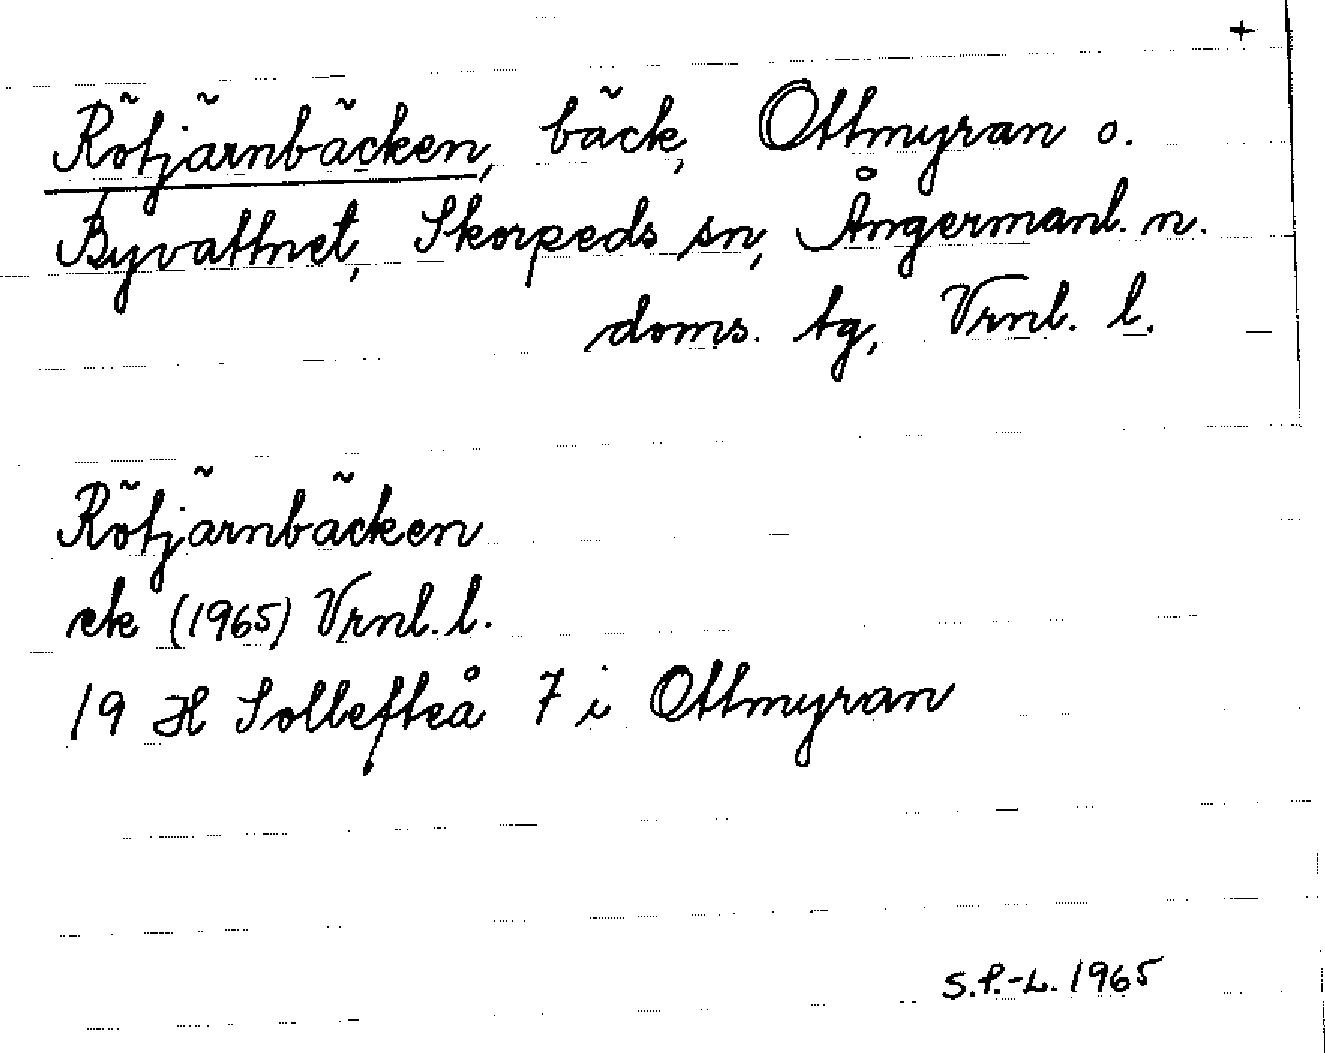 +
Rötjärnbäcken, bäck, Ottmyran o.
Byvattnet, Skorpeds sn, Ångermanl. n.
doms. tg, Vrnl. l.
Rötjärnbäcken
ek (1965) Vrnl. l.
19 H Sollefteå 7 i Ottmyran
S.P.-L. 1965